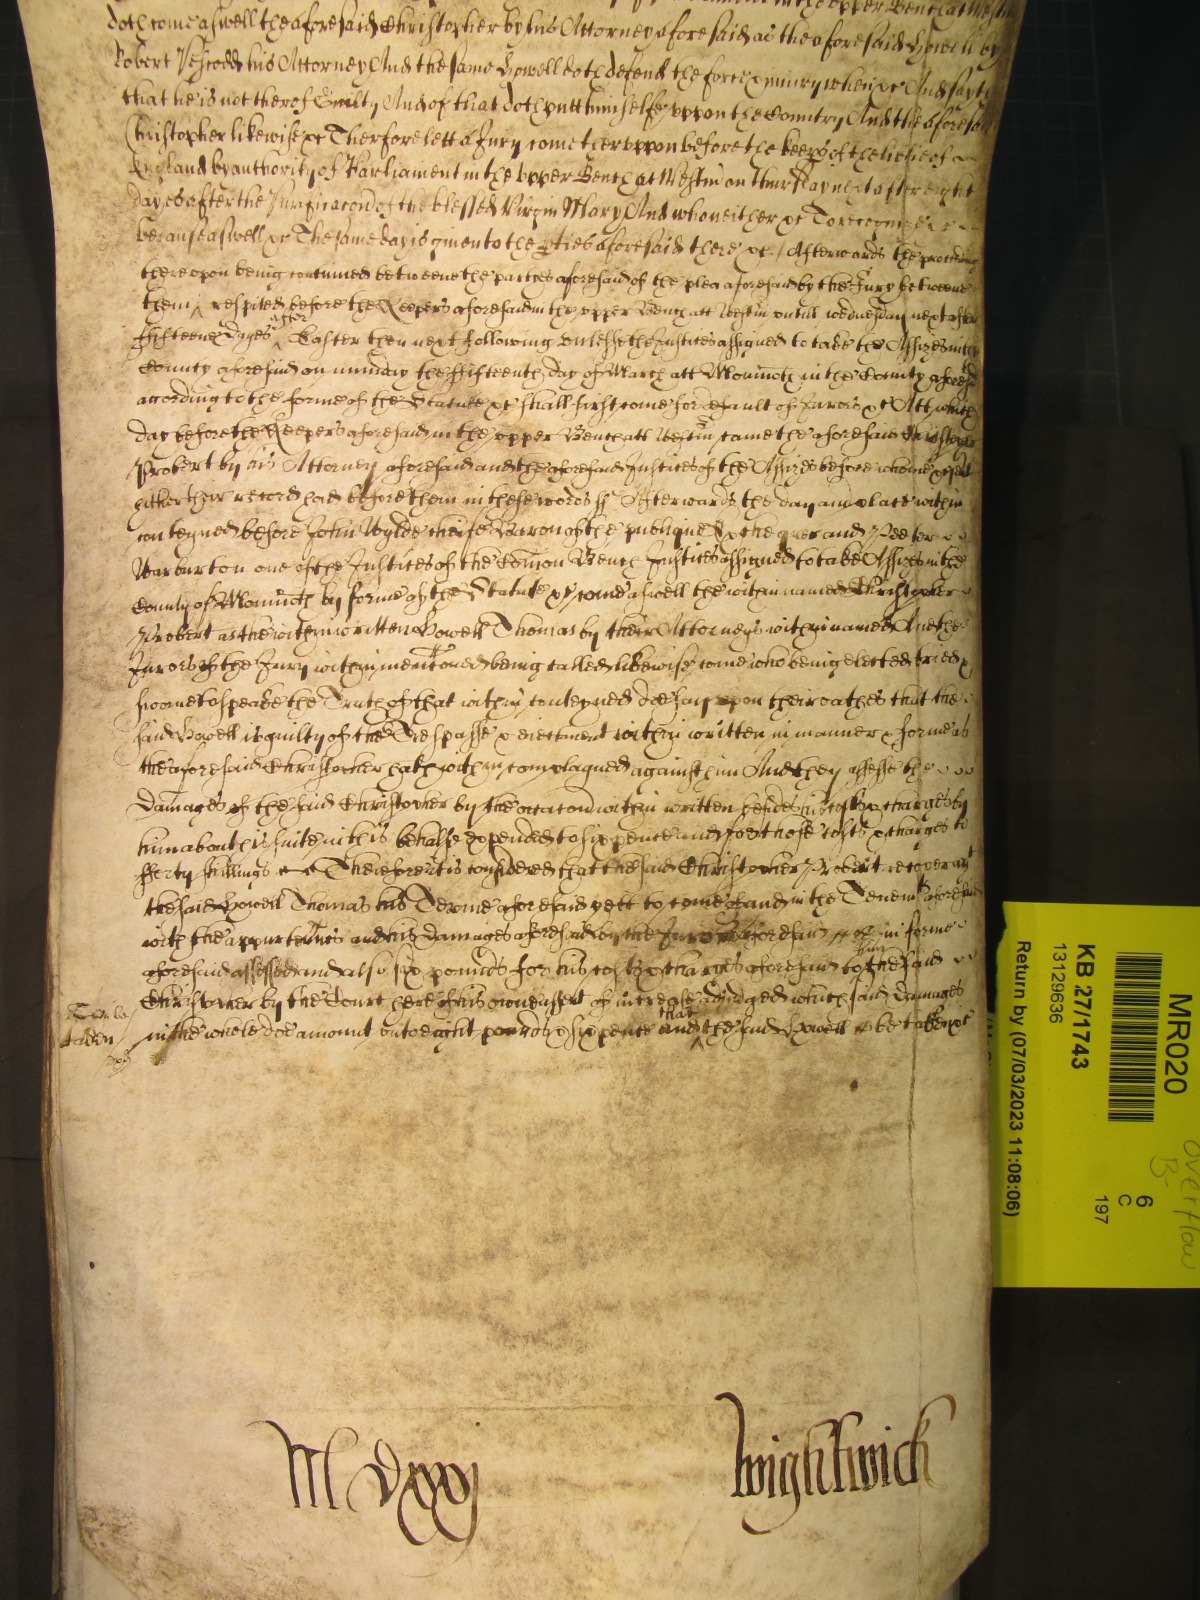 in the upper Bench at Westm
doth come aswell the aforesaid Christopher by his Attorney aforesaid as the aforesaid Howell by
Robert his Attorney And the same Howell doth defend the force & iniury when &c And sayth
that he is not therof Guilty And of that doth putt himselfe uppon the Country And the aforesaid
Christopher likewise &c Therfore lett a Jury come theruppon before the keeps of the libtie of
England by authority of Parliament in the upper Bench at Westm on Thursday next after eight
dayes after the Purificacon of the blessed Virgin Mary And who neither &c To recognize
because aswell &c The same day is given to the pties aforesaid there &c / Afterwards the processe
thereupon being continued betweene the parties aforesaid of the plea aforesaid by the Jury betweene
them respited before the Keepers aforesaid in the upper Bench att Westm untill wednesday next after
ffifteene dayes after Easter then next following unlesse the Justices assigned to take the Assizes in the
County aforesaid on munday the ffifteenth day of March att Monmoth in the County aforesd
according to the forme of the Statute &c shall first come for default of Jurors &c Att which
day before the Keepers aforesaid in the upper Bench att Westm came the aforesaid Christopher
Probert by his Attorney aforesaid and the aforesaid Justices of the Assizes before whome &c sent
hither their record had before them in these words ss Afterwards the day and place within
conteyned before John Wylde cheife Baron of the publique Exchequer and Peeter
Warburton one of the Justices of the Comon Bench Justices assigned to take Assizes in the
County of Monmoth by forme of the Statute &c come aswell the within named Christopher
Probert as the within written Howell Thomas by their Attorneys within named And the
Jurors of the Jury within mentoned being called likewise come who being elected tried &
sworne to speake the Truth of that within conteyned doe say upon their oathes that the
said Howell is guilty of the Trespasse & eiectment within written in manner & forme as
the aforesaid Christopher hath within complayned against him And they assesse the
damages of the said Christopher by the occacon within written besides his costs & charges by
him about his suite in this behalfe expended to six pence and for those costs & charges to
fforty shillings Therefore it is considered that the said Christopher Probert recover agt
the said Howell Thomas his Terme aforesaid yett to come of and in the Tenemts aforesaid
with the appurtenncs and his damages aforesaid by the Jurors aforesaid in forme
aforesaid assessed and also six pounds for his costs & charges aforesaid to him the said
Christopher by the Court here of his owne assent of increase adiudged which said damages
in the whole doe amount unto eight pounds & six pence and that the said Howell be taken &c
To be
taken
M Dxxxj
Wightwick
MR020
KB 27/1743
13129636
Return by (07/03/2023 11:08:06)
6
C
197
overflow
B-